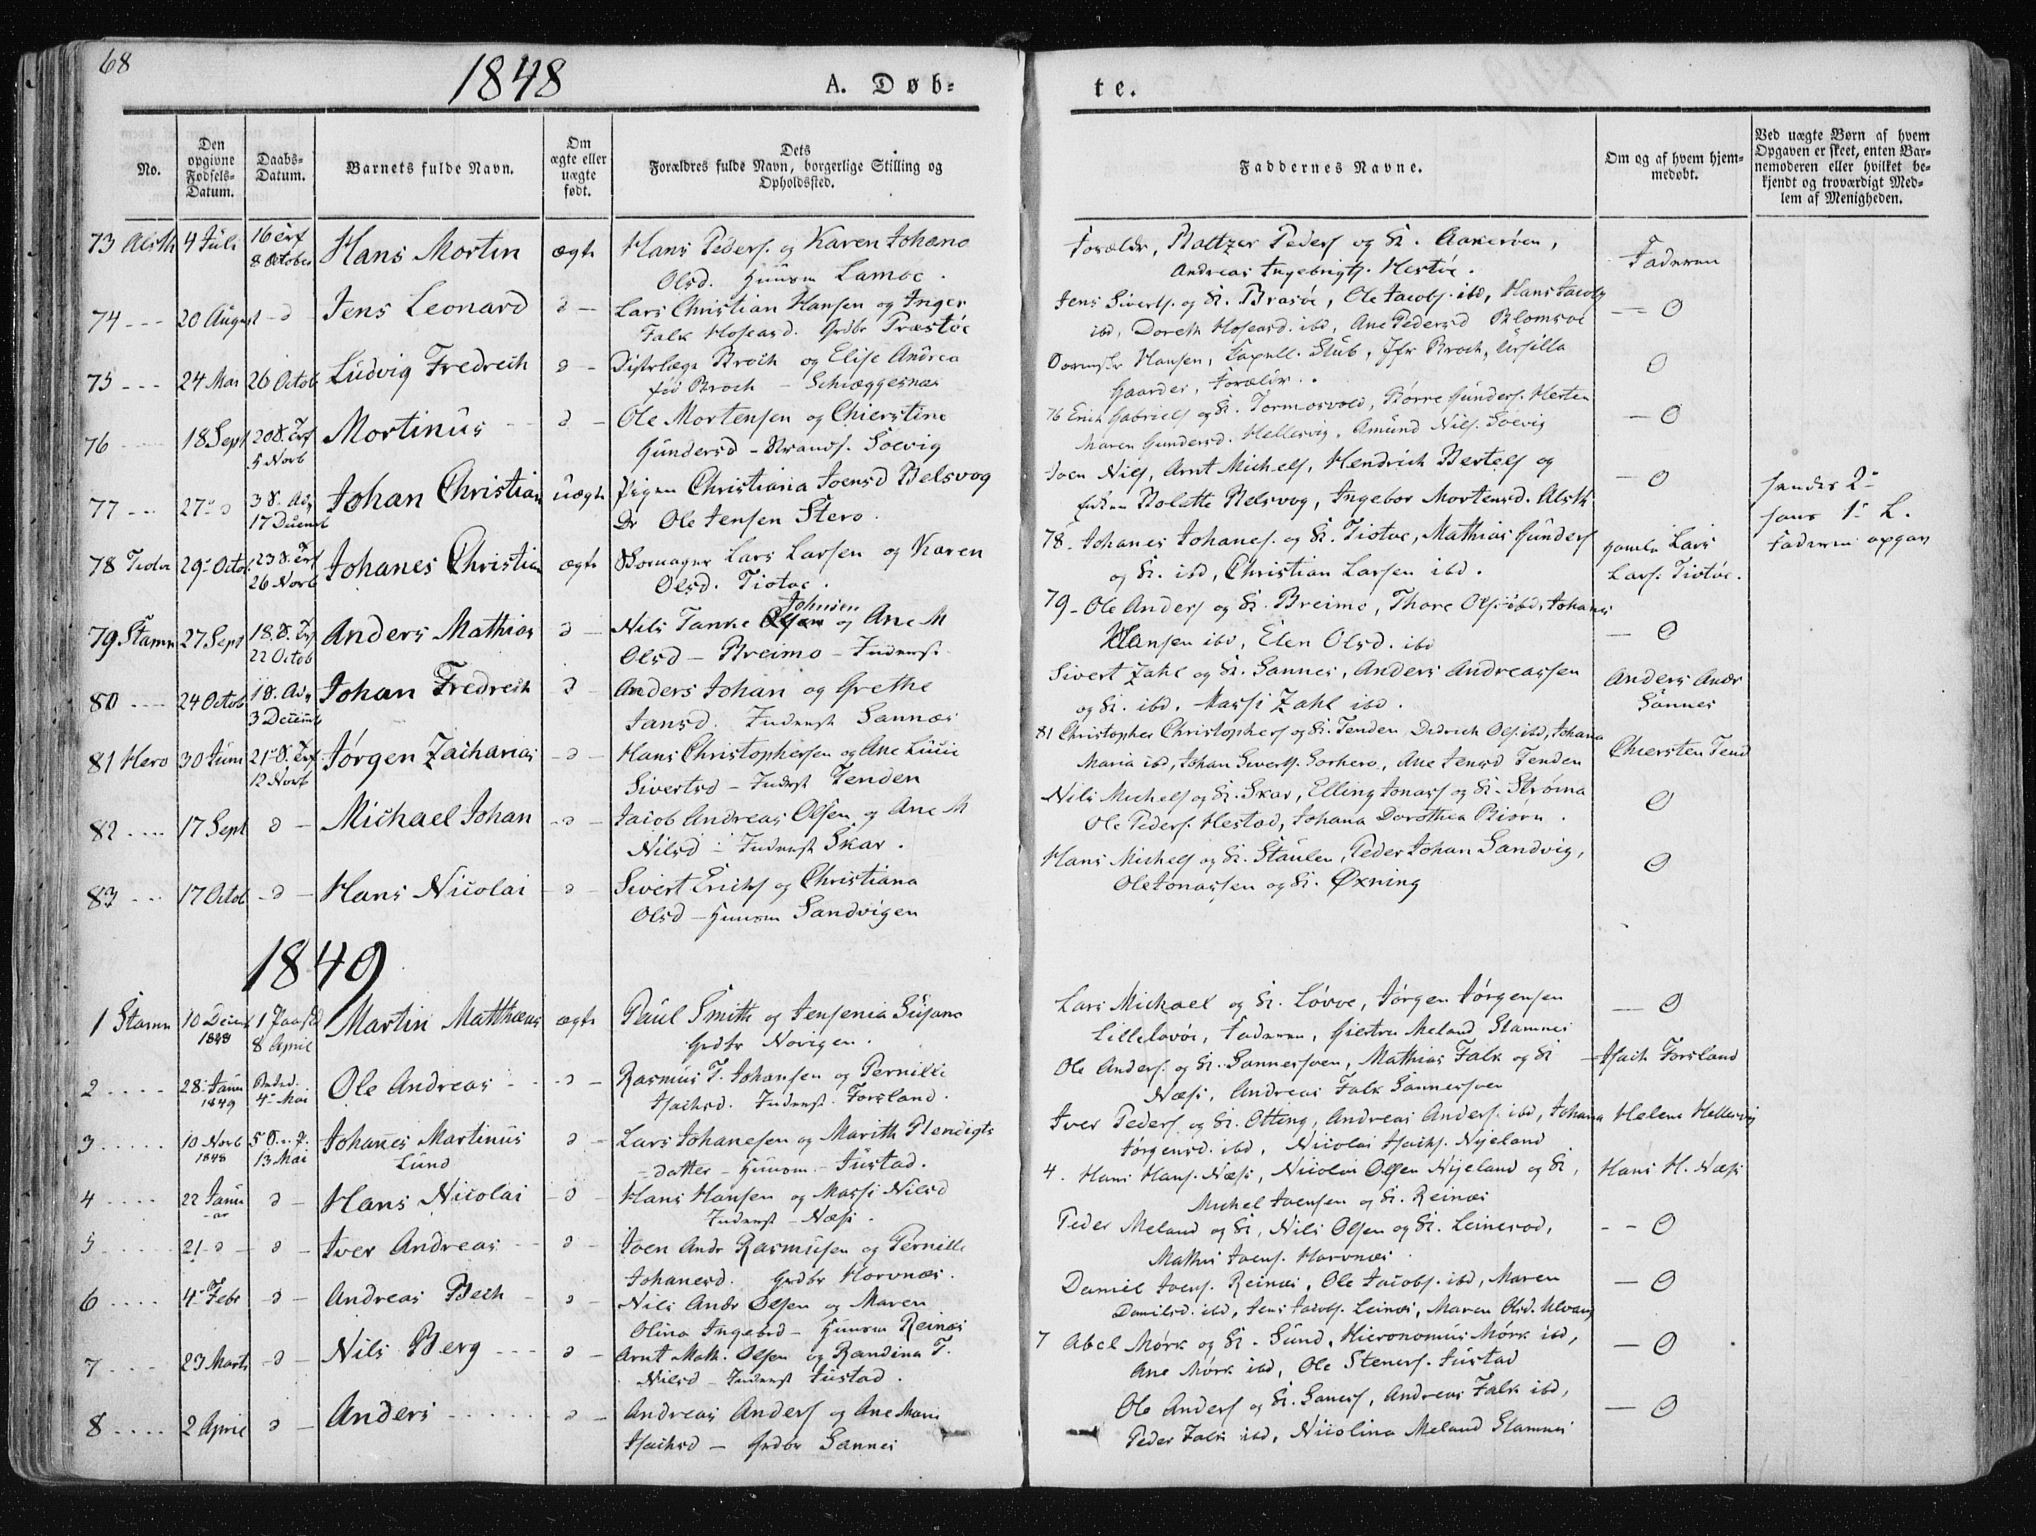 68
1848
A. Døb-
te.
No.
Den opgivne Fødsels-Datum.
Daabs-Datum.
Barnets fulde Navn.
Om ægte eller uægte født.
Dets Forældres fulde Navn, borgerlige Stilling og Opholdssted.
Faddernes Navne.
Om og af hvem hjem-medøbt.
Ved uægte Børn af hvem Opgaven er skeet, enten Bar-nemoderen eller hvilket be-kjendt og troværdigt Med-lem af Menigheden.
73 Alsth 4 Juli 16 Trf 8 October Hans Mortin ægte Hans Peders. og Karen Johana
Olsd. Huusm Lamoe.
Forældr, Baltzer Peders og K. Aakerøen,
Andreas Ingebrigts. Hestøe.
Faderen
74 --- 20 August - d Jens Leonard d - Lars Christian Hansen og Inger
Falk Hoseasd. Grdbr Præstøe
Jens Siverts. og K. Brasøe, Ole Jacobs. ibd, Hans Jacobs
ibd, Doreth Hoseasd. ibd, Ane Pedersd Blomsøe
— O
75 --- 24 Mai 26 Octob Ludvig Fredrich d - Distrlæge Broch og Elise Andrea
fød Broch - Schieggesnæs
Hansen, Kapell. Stub, Jfr Broch, Ursilla
Gaarder, Forældr.
O
76 --- 18 Sept 20 S. Trf 5 Novb Mortinus d - Ole Mortensen og Chierstine
Gundersd - Strands. Soevig
76 Erich Gabriels og K. Tormosvold, Børre Gunders. Hesten
Maren Gundersd. Hellesvig, Amund Nils. Søevig
— O
77 --- 27 - d 3 S. Adv 17 Decemb Johan Christian uægte Pigen Christiana Joensd Belsvog
Dr Ole Jensen Stero.
Joen Nils, Arnt Michels, Hendrich Bertels og
Bolette Belsvog, Ingebor Mortensd. Alsth
— O
hendes 2-
hans 1- L.
Faderen opgav
78 Tiotø 29 Octob 23 S. Trf 26 Novb Johanes Christian ægte Lars Larsen og Karen
Olsd. Tiotøe.
78 - Johanes Johanes. og K. Tiotøe, Mathias Gunders
og K. ibd, Christian Larsen ibd.
gamle Lars
Lars. Tiotøe.
79 Stamn 27 Sept 18 S. Trf 22 Octob Anders Mathias d - Nils Tanke Johnsen og Ane M
Olsd - Breimo - Inderst
79 - Ole Anders og K. Breimo, Thore Ols. ibd, Johanes
Hansen ibd, Elen Olsd. ibd
— O
80 --- 24 Octob 1 S. Adv 3 Decemb Johan Fredrich d - Anders Johan og Grethe
Jansd. Inderst Sannæs
Sivert Zahl og K. Sannes, Anders Andreassen
og K. ibd. Massi Zahl ibd.
Anders Andr
Sannes
81 Hero 30 Juni 21 S. Trf. 12 Novb Jørgen Zacharias - d - Hans Christophersen og Ane Lucie
Sivertsd - Inderst Tenden
81 Christopher Christophers og K. Tenden, Didrich Ols. ibd, Johana
Maria ibd, Johan Siverts. Sørhero, Ane Jensd Tenden
Chiersten Tend
82 .... 17 Sept d - Michael Johan - d - Jacob Andreas Olsen og Ane M
Nilsd - Inderst Skar.
Nils Michels og K. Skar, Elling Jonas og K. Strøma
Ole Peders. Hestad, Johana Dorothea Biørn.
O
83 --- 17 Octob - d - Hans Nicolai - d - Sivert Erichs og Christiana
Olsd - Huusm Sandvigen
Hans Michels og K. Staulen, Peder Johan Sandvig,
Ole Jonassen og K. Øxning
O
1849
1 Stamn 10 Decemb 1848 1 Paasked 8 April Martin Mathæus ægte Paul Smith og Jensenia Susana
Grdbr Novigen.
Lars Michael og K. Løvøe, Jørgen Jørgensen
Lilleløvøe, Faderen, Giertru Meland Stamnes
— O
2 .... 28 Janu 1849 Beded. 4 Mai Ole Andreas - d - Rasmus T. Johansen og Pernille
Isachsd. Inderst. Forsland.
Ole Anders. og K. Sannesøen, Mathias Falk og K
Næss, Andreas Falk Sannesøen
Isach Forsland
3 ..... 10 Novb 1848 5 S. e. P. 13 Mai Johanes Martinus
Lund
d - Lars Johanesen og Marith Bendigts
datter - Huusm - Justad.
Iver Peders og K. Otting, Andreas Anders. ibd, Johana
Jørgensd. ibd, Nicolai Isachs. Nyeland
Helene Hellesvig
4 .... 22 Januar d - Hans Nicolai - d - Hans Hansen og Massi Nilsd
Inderst - Næss.
4. Hans Hans. Næss, Nicolai Olsen Nyeland og K,
Michel Joensen og K. Reinæs
Hans H. Næss
5 ..... 21 - d - d - Iver Andreas - d - Joen Andr Rasmusen og Pernille
Johanesd. Grdbr Horvnæs.
Peder Meland og K, Nils Olsen og K. Leinesod,
Mathis Joens. Horvnæs.
-- O
6 .... 4 Febr - d - Andreas Bech - d - Nils Andr Olsen og Maren
Olina Ingebrd - Huusm Reinæs
Daniel Joens. Reinæs, Ole Jacobs. ibd, Maren
Danilsd. ibd, Jens Jacobs. Leinæs, Maren Olsd. Ulvang
— O
7 .... 23 Marts - d - Nils Berg --- d - Arnt Math. Olsen og Randina T.
Nilsd - Inderst Justad.
7 Abel Mørk og K. Sund, Hieronomus Mørk ibd,
Ane Mørk ibd, Ole Steners. Justad
— O
8 .... 2 April d - Anders ..... d - Andreas Anders og Ane Marie
Isachsd - Grdbr Sannes
Ole Anders og K. Saness, Andreas Falk ibd,
Peder Falk ibd, Nicolina Meland Stamnes
— O